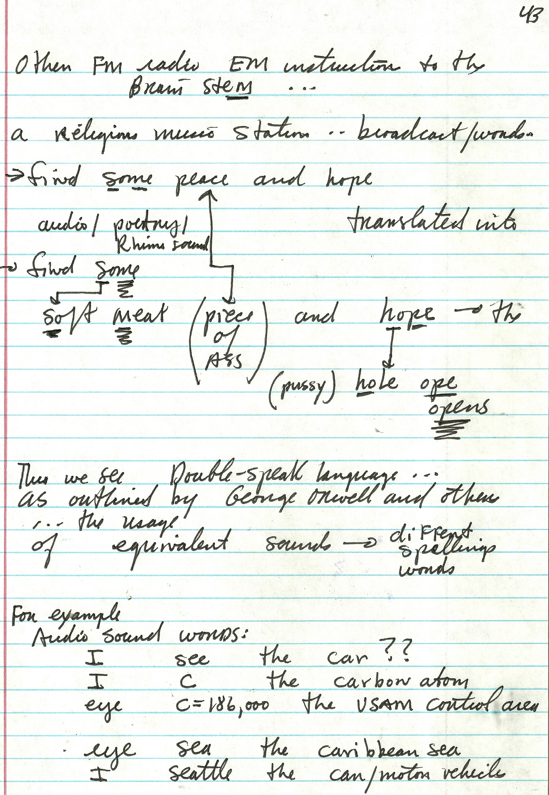 43
Other FM radio EM instruction to the
Brain stem ...
a religious music station .. broadcast/words
→ find some peace and hope
audio/ poetry/ translated into
Rhime sound
→ find some
soft meat (piece and hope → the
of
ASS)
(pussy) hole ope
opens
Thus we see Double-speak language ...
as outlined by George Orwell and others
... the usage
of equivalent sounds → different
spellings
words
For example
Audio sound words:
I see the car ??
I C the carbon atom
eye C=186,000 the USAM control area
eye sea the caribbean sea
I seattle the car/motor vehicle